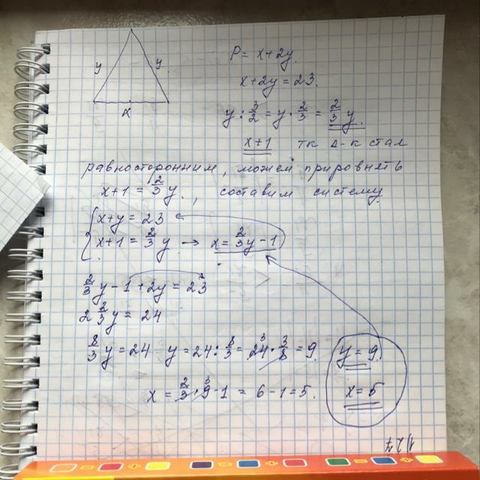 y y
x
P = x+2y
x+2y = 23.
y : 3/2 = y · 2/3 = 2/3 y.
x+1 тк Δ-к стал
равносторонним, можем прировнять
x+1 = 2/3 y., составим систему
{ x+y = 23
x+1 = 2/3 y → x = 2/3 y - 1
2/3 y - 1 + 2y = 23
2 2/3 y = 24
8/3 y = 24 y = 24 : 8/3 = 24 · 3/8 = 9.
3
y = 9
x = 2/3 · 9 - 1 = 6 - 1 = 5.
3
x = 5